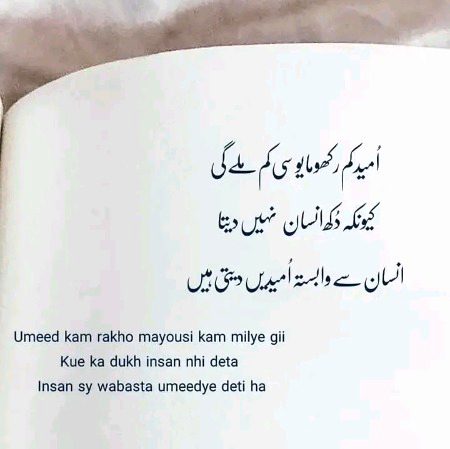 اُمید کم رکھو مایوسی کم ملے گی
کیونکہ دُکھ انسان نہیں دیتا
انسان سے وابستہ اُمیدیں دیتی ہیں
Umeed kam rakho mayousi kam milye gii
Kue ka dukh insan nhi deta
Insan sy wabasta umeedye deti ha